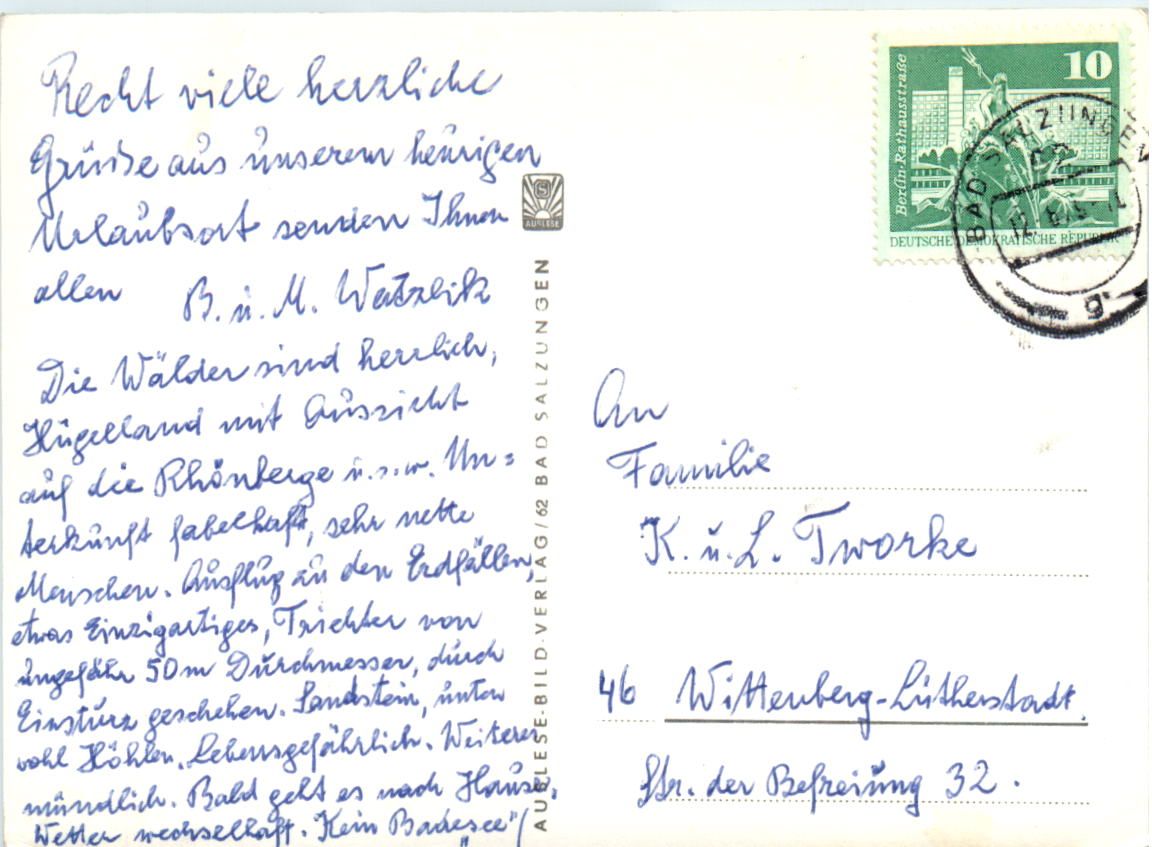 Recht viele herzliche
Grüße aus unserem heurigen
Urlaubsort senden Ihnen
allen B. u. M. Watzlik
Die Wälder sind herrlich,
Hügelland mit Aussicht
auf die Rhönberge u.s.w. Un=
terkunft fabelhaft, sehr nette
Menschen. Ausflug zu den Erdfällen,
etwas Einzigartiges, Trichter von
ungefähr 50 m Durchmesser, durch
Einsturz geschehen. Sandstein, unten
wohl Höhlen. Lebensgefährlich. Weiteres
mündlich. Bald geht es nach Hause.
Wetter wechselhaft. Kein „Badesee"!
AUSLESE
AUSLESE-BILD-VERLAG/62 BAD SALZUNGEN
10
Berlin·Rathausstraße
DEUTSCHE DEMOKRATISCHE REPUBLIK
BAD SALZUNGEN
An
Familie
K. u. L. Tworke
46 Wittenberg-Lutherstadt.
Str. der Befreiung 32.